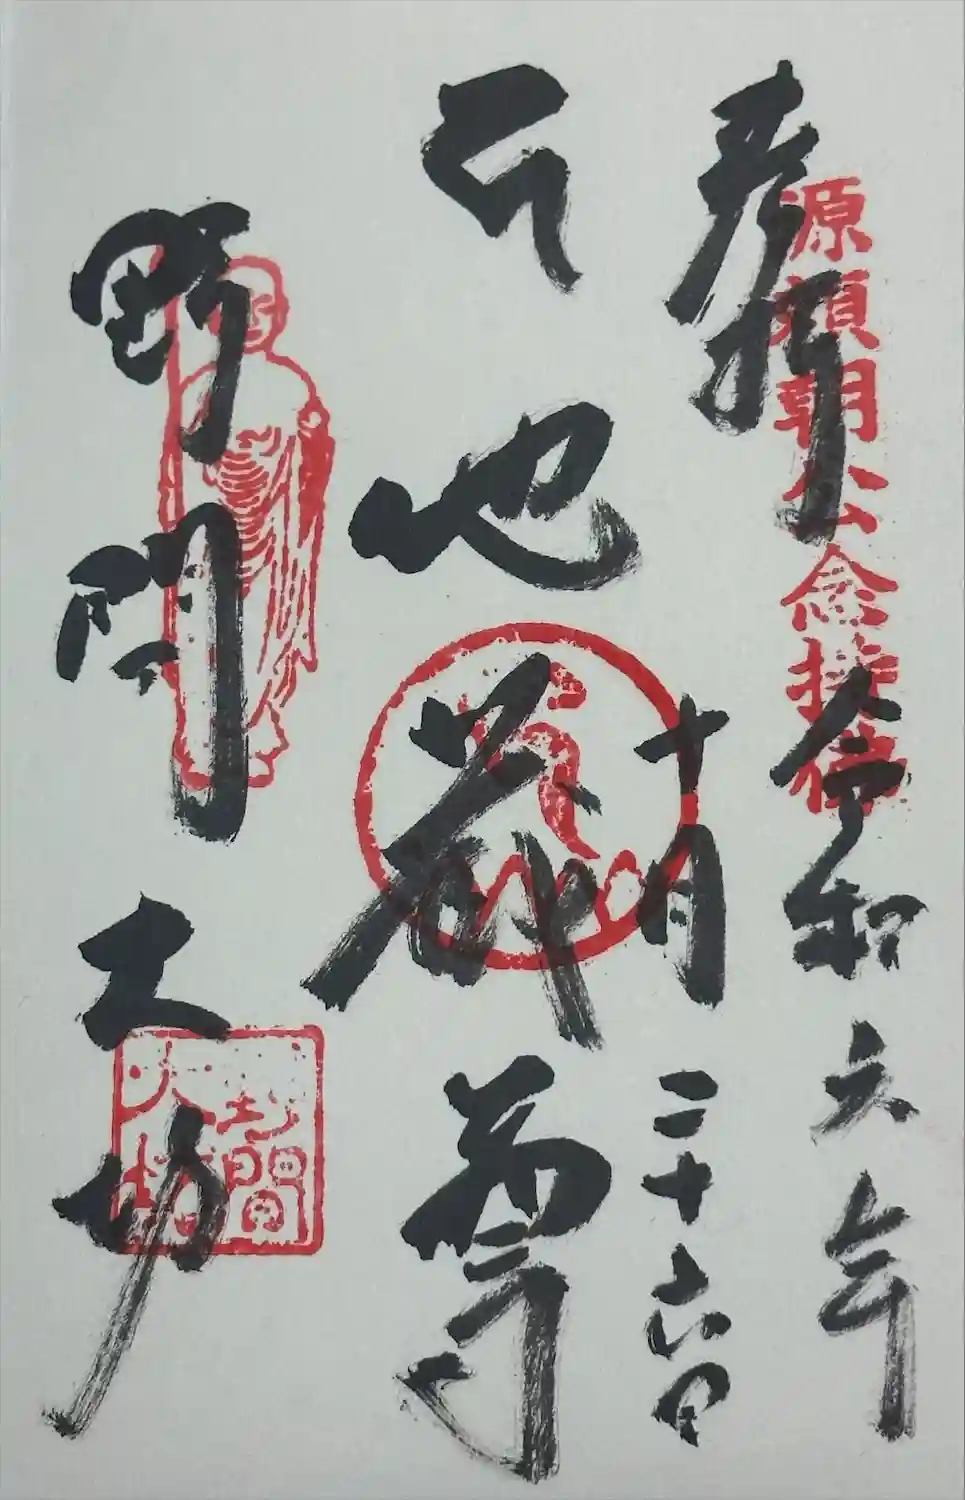 奉拝
源頼朝公念持佛
令和六年
十月二十六日
地蔵尊
野間大坊
野間大坊